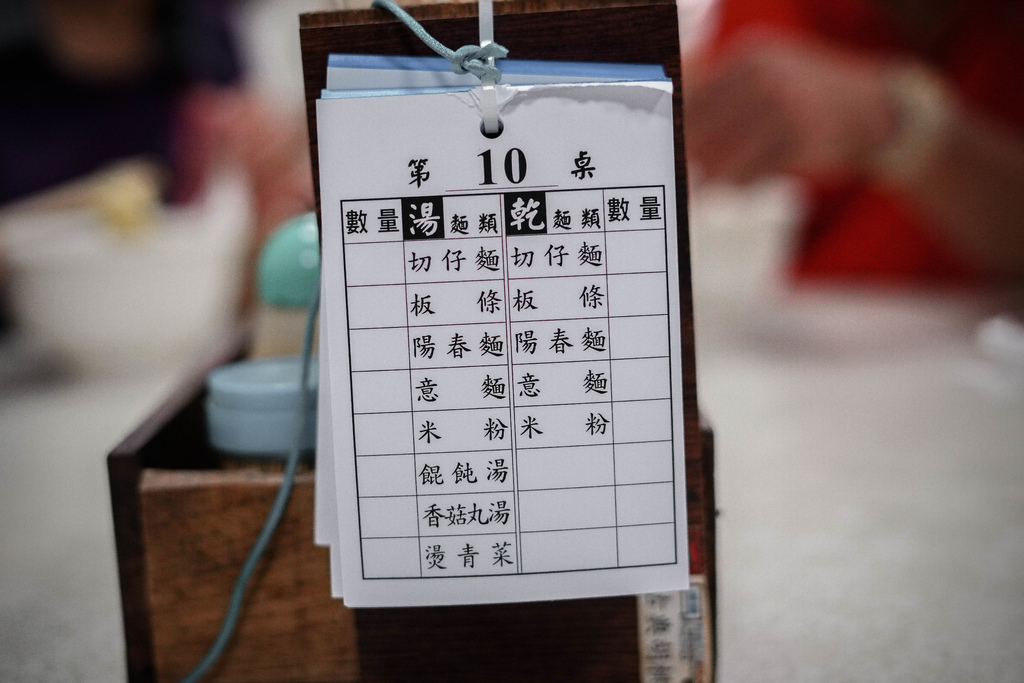 第 10 桌
數量 湯麵類 乾麵類 數量
切仔麵 切仔麵
板條 板條
陽春麵 陽春麵
意麵 意麵
米粉 米粉
餛飩湯
香菇丸湯
燙青菜